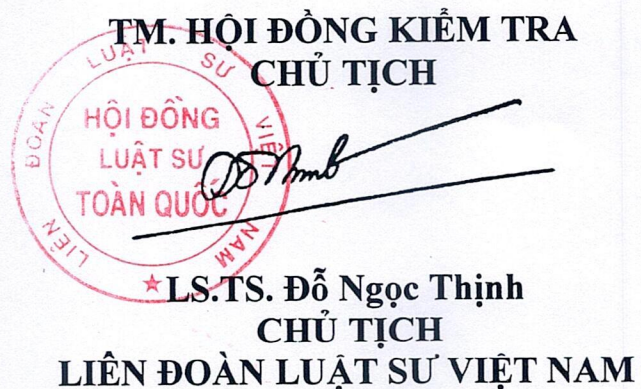 TM. HỘI ĐỒNG KIỂM TRA
CHỦ TỊCH
LIÊN ĐOÀN LUẬT SƯ VIỆT NAM
HỘI ĐỒNG
LUẬT SƯ
TOÀN QUỐC
LS.TS. Đỗ Ngọc Thịnh
CHỦ TỊCH
LIÊN ĐOÀN LUẬT SƯ VIỆT NAM